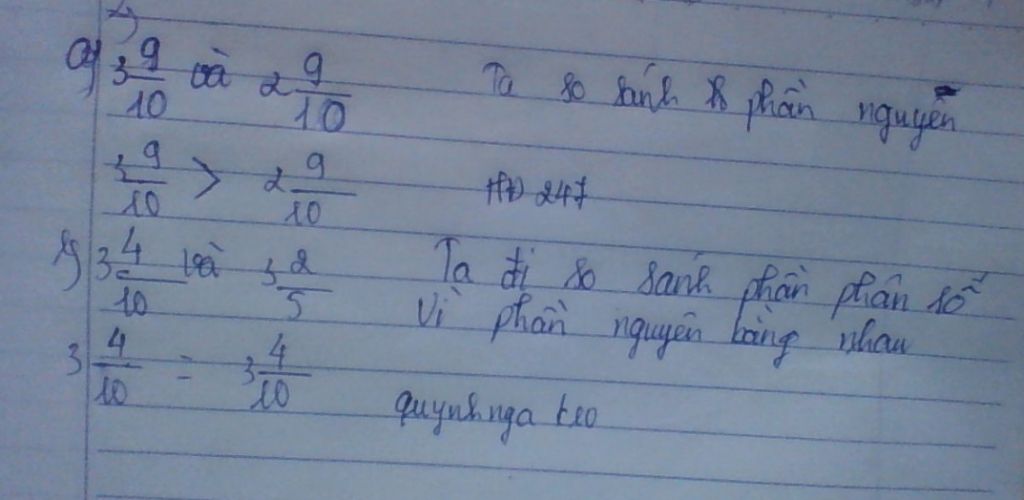 a) 3 9/10 và 2 9/10 Ta so sánh phần nguyên
3 9/10 > 2 9/10 247
3 4/10 và 3 2/5 Ta đi so sánh phần phân số
Vì phần nguyên bằng nhau
3 4/10 = 3 4/10
quynhnga